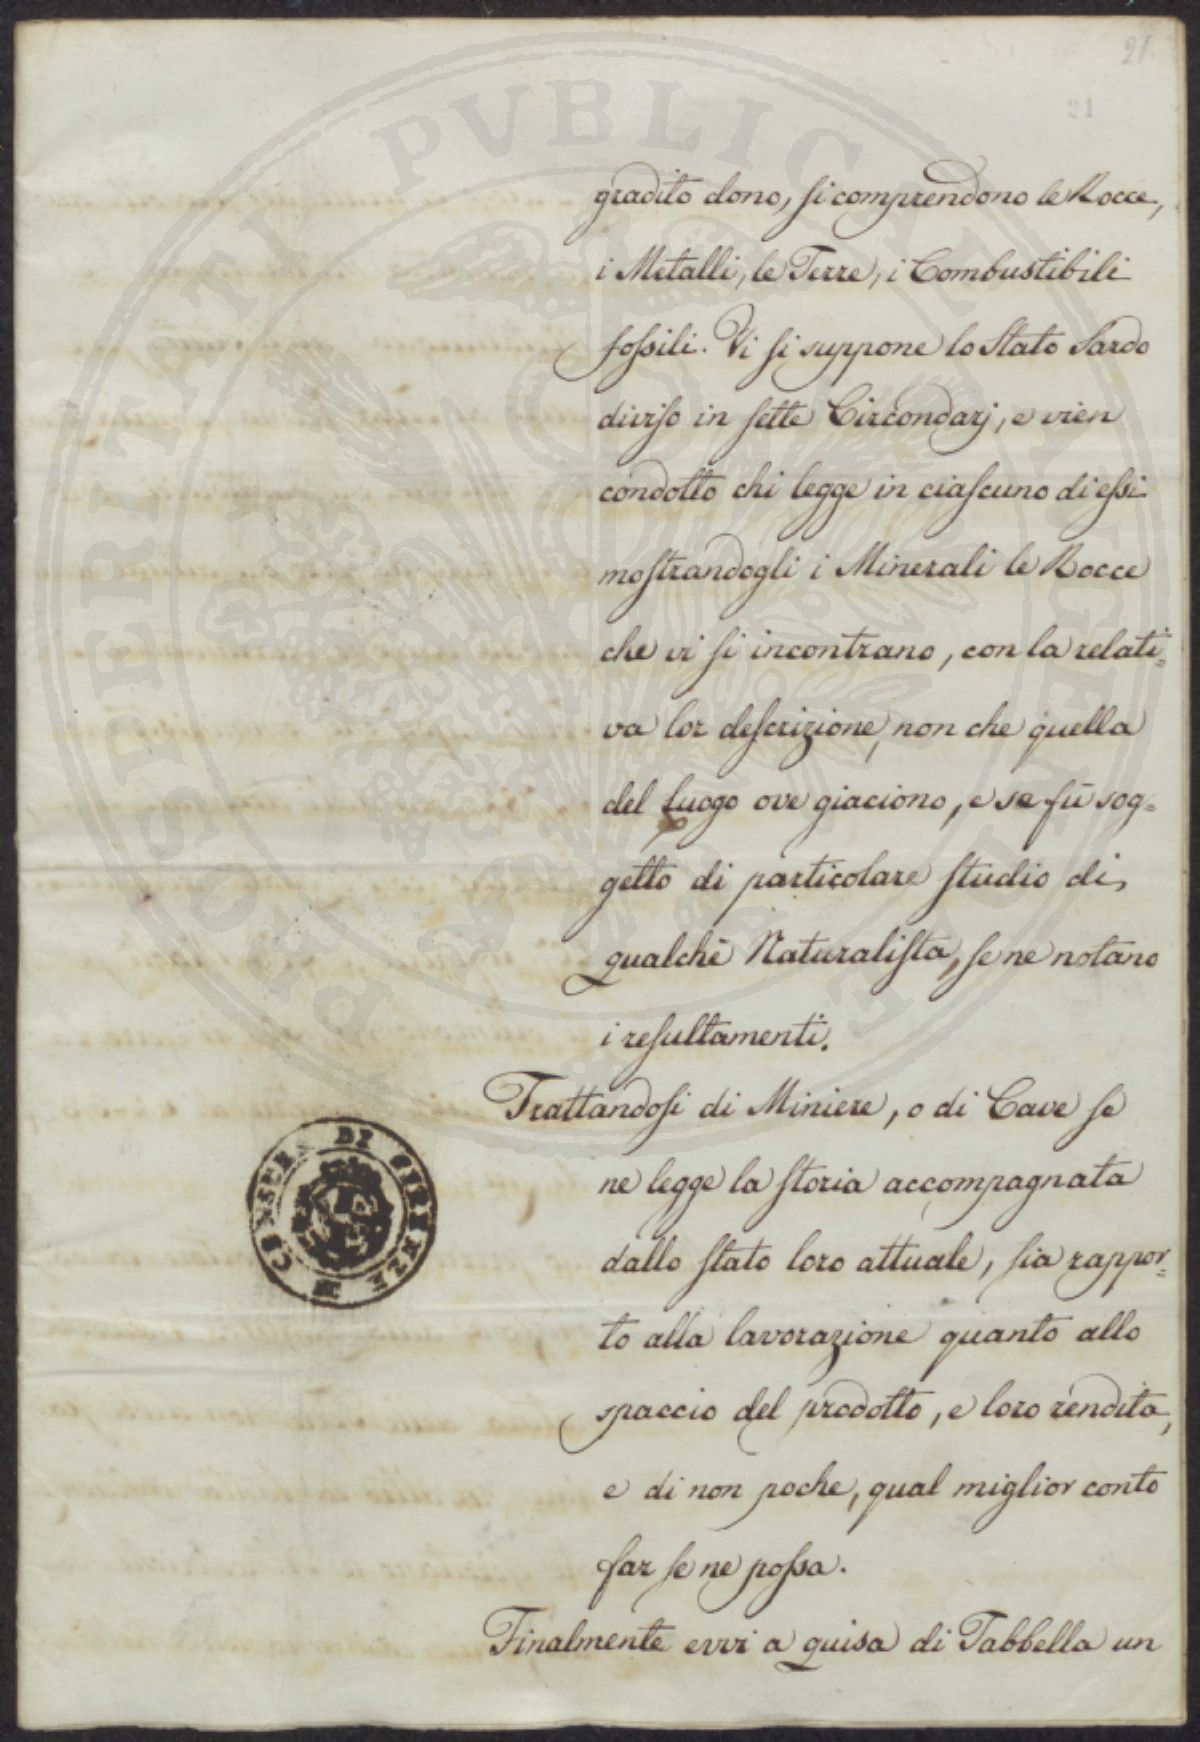 21.
21
gradito dono, si comprendono le Rocce,
i Metalli, le Terre, i Combustibili
fossili. Vi si suppone lo Stato Sardo
diviso in sette Circondarj, e vien
condotto chi legge in ciascuno di essi
mostrandogli i Minerali le Rocce
che vi si incontrano, con la relati=
va lor descrizione, non che quella
del luogo ove giaciono, e se fù sog=
getto di particolare studio di
qualchè Naturalista, se ne notano
i resultamenti.
Trattandosi di Miniere, o di Cave se
ne legge la storia accompagnata
dallo stato loro attuale, sia rappor=
to alla lavorazione quanto allo
spaccio del prodotto, e loro rendita,
e di non poche, qual miglior conto
far se ne possa.
Finalmente evvi a guisa di Tabbella un
PROSPERITATI PVBLICAE AVGENDAE
DI FIRENZE